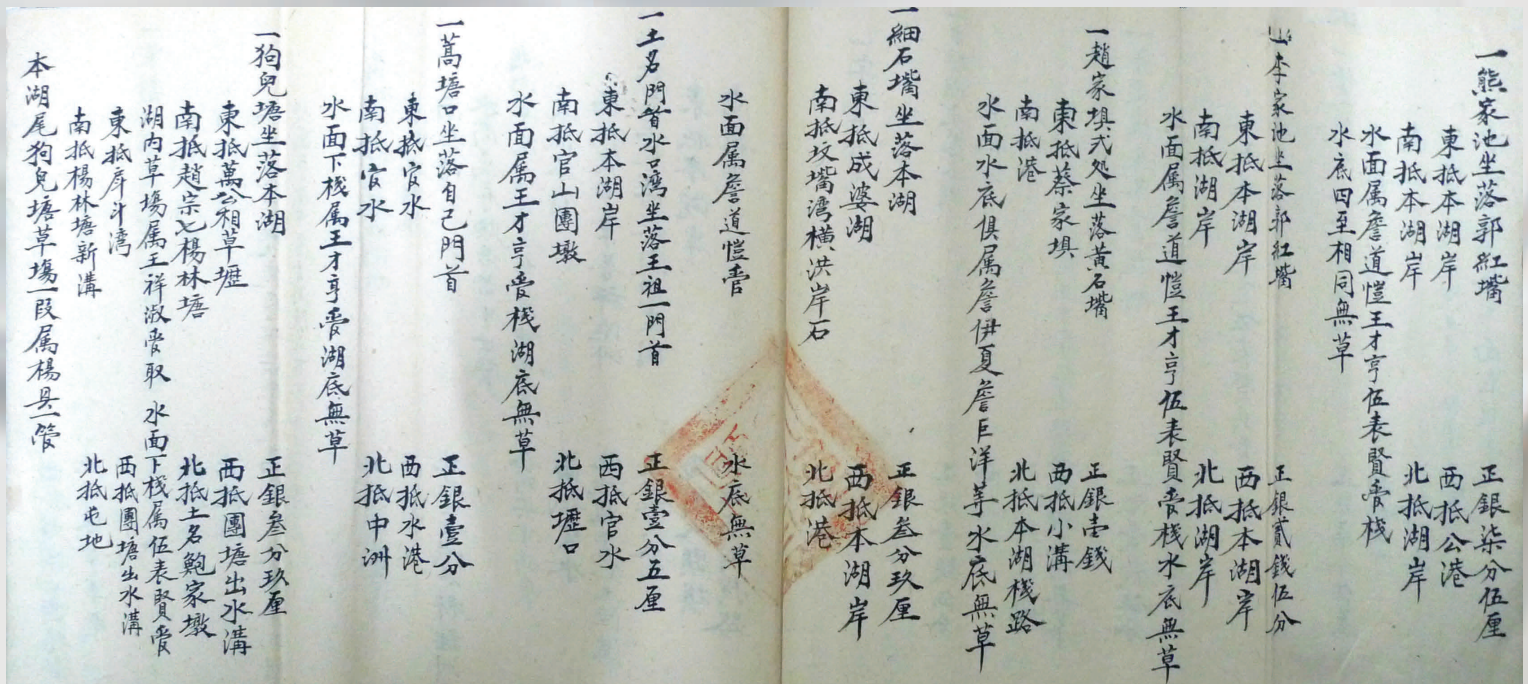 一熊家池坐落郭紅嘴 正銀柒分伍厘
東抵本湖岸 西抵公港
南抵本湖岸 北抵湖岸
水面属詹道愷王才亨伍表賢管栈
水底四至相同無草
李家池坐落郭紅嘴 正銀貳錢伍分
東抵本湖岸 西抵本湖岸
南抵湖岸 北抵湖岸
水面属詹道愷王才亨伍表賢管栈水底無草
一趙家塤弍処坐落黄石嘴 正銀壹錢
東抵蔡家塤 西抵小溝
南抵港 北抵本湖栈路
水面水底俱属詹伊夏詹巨洋等水底無草
一細石嘴坐落本湖 正銀叁分玖厘
東抵成婆湖 西抵本湖岸
南抵坟嘴湾横洪岸石 北抵港
水面属詹道愷管 水底無草
一土名門首水口湾坐落王祖一門首 正銀壹分五厘
東抵本湖岸 西抵官水
南抵官山團墩 北抵壢口
水面属王才亨管栈湖底無草
一蒿塘口坐落自己門首 正銀壹分
東抵官水 西抵水港
南抵官水 北抵中洲
水面下栈属王才亨管湖底無草
一狗兒塘坐落本湖 正銀叁分玖厘
東抵萬公相草壢 西抵團塘出水溝
南抵趙宗七楊林塘 北抵土名鮑家墩
湖内草塲属王祥淑管取 水面下栈属伍表賢管
東抵戽斗湾 西抵團塘出水溝
南抵楊林塘新溝 北抵屯地
本湖尾狗兒塘草塲一段属楊具一管